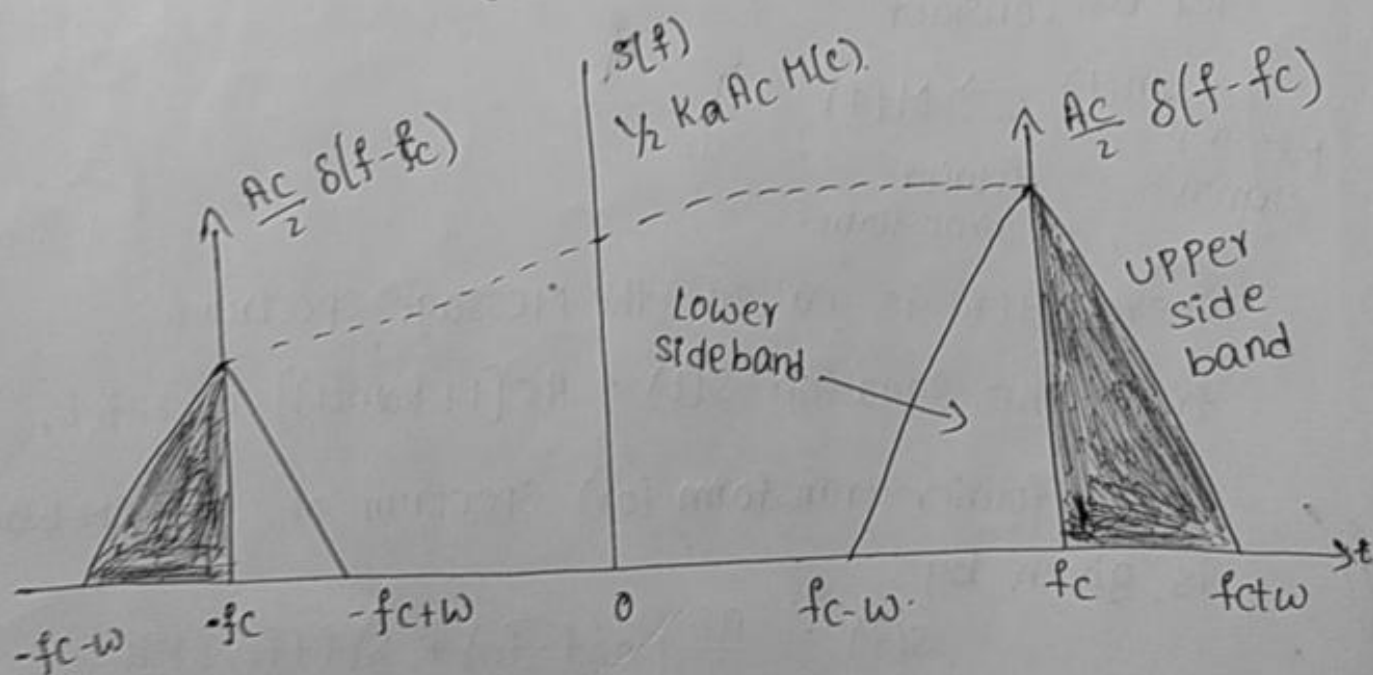 S(f)
½ Ka Ac M(c).
Ac/2 δ(f-fc)
Ac/2 δ(f-fc)
Lower
sideband
UPPer
side
band
-fc-w
-fc
-fc+w
0
fc-w.
fc
fc+w